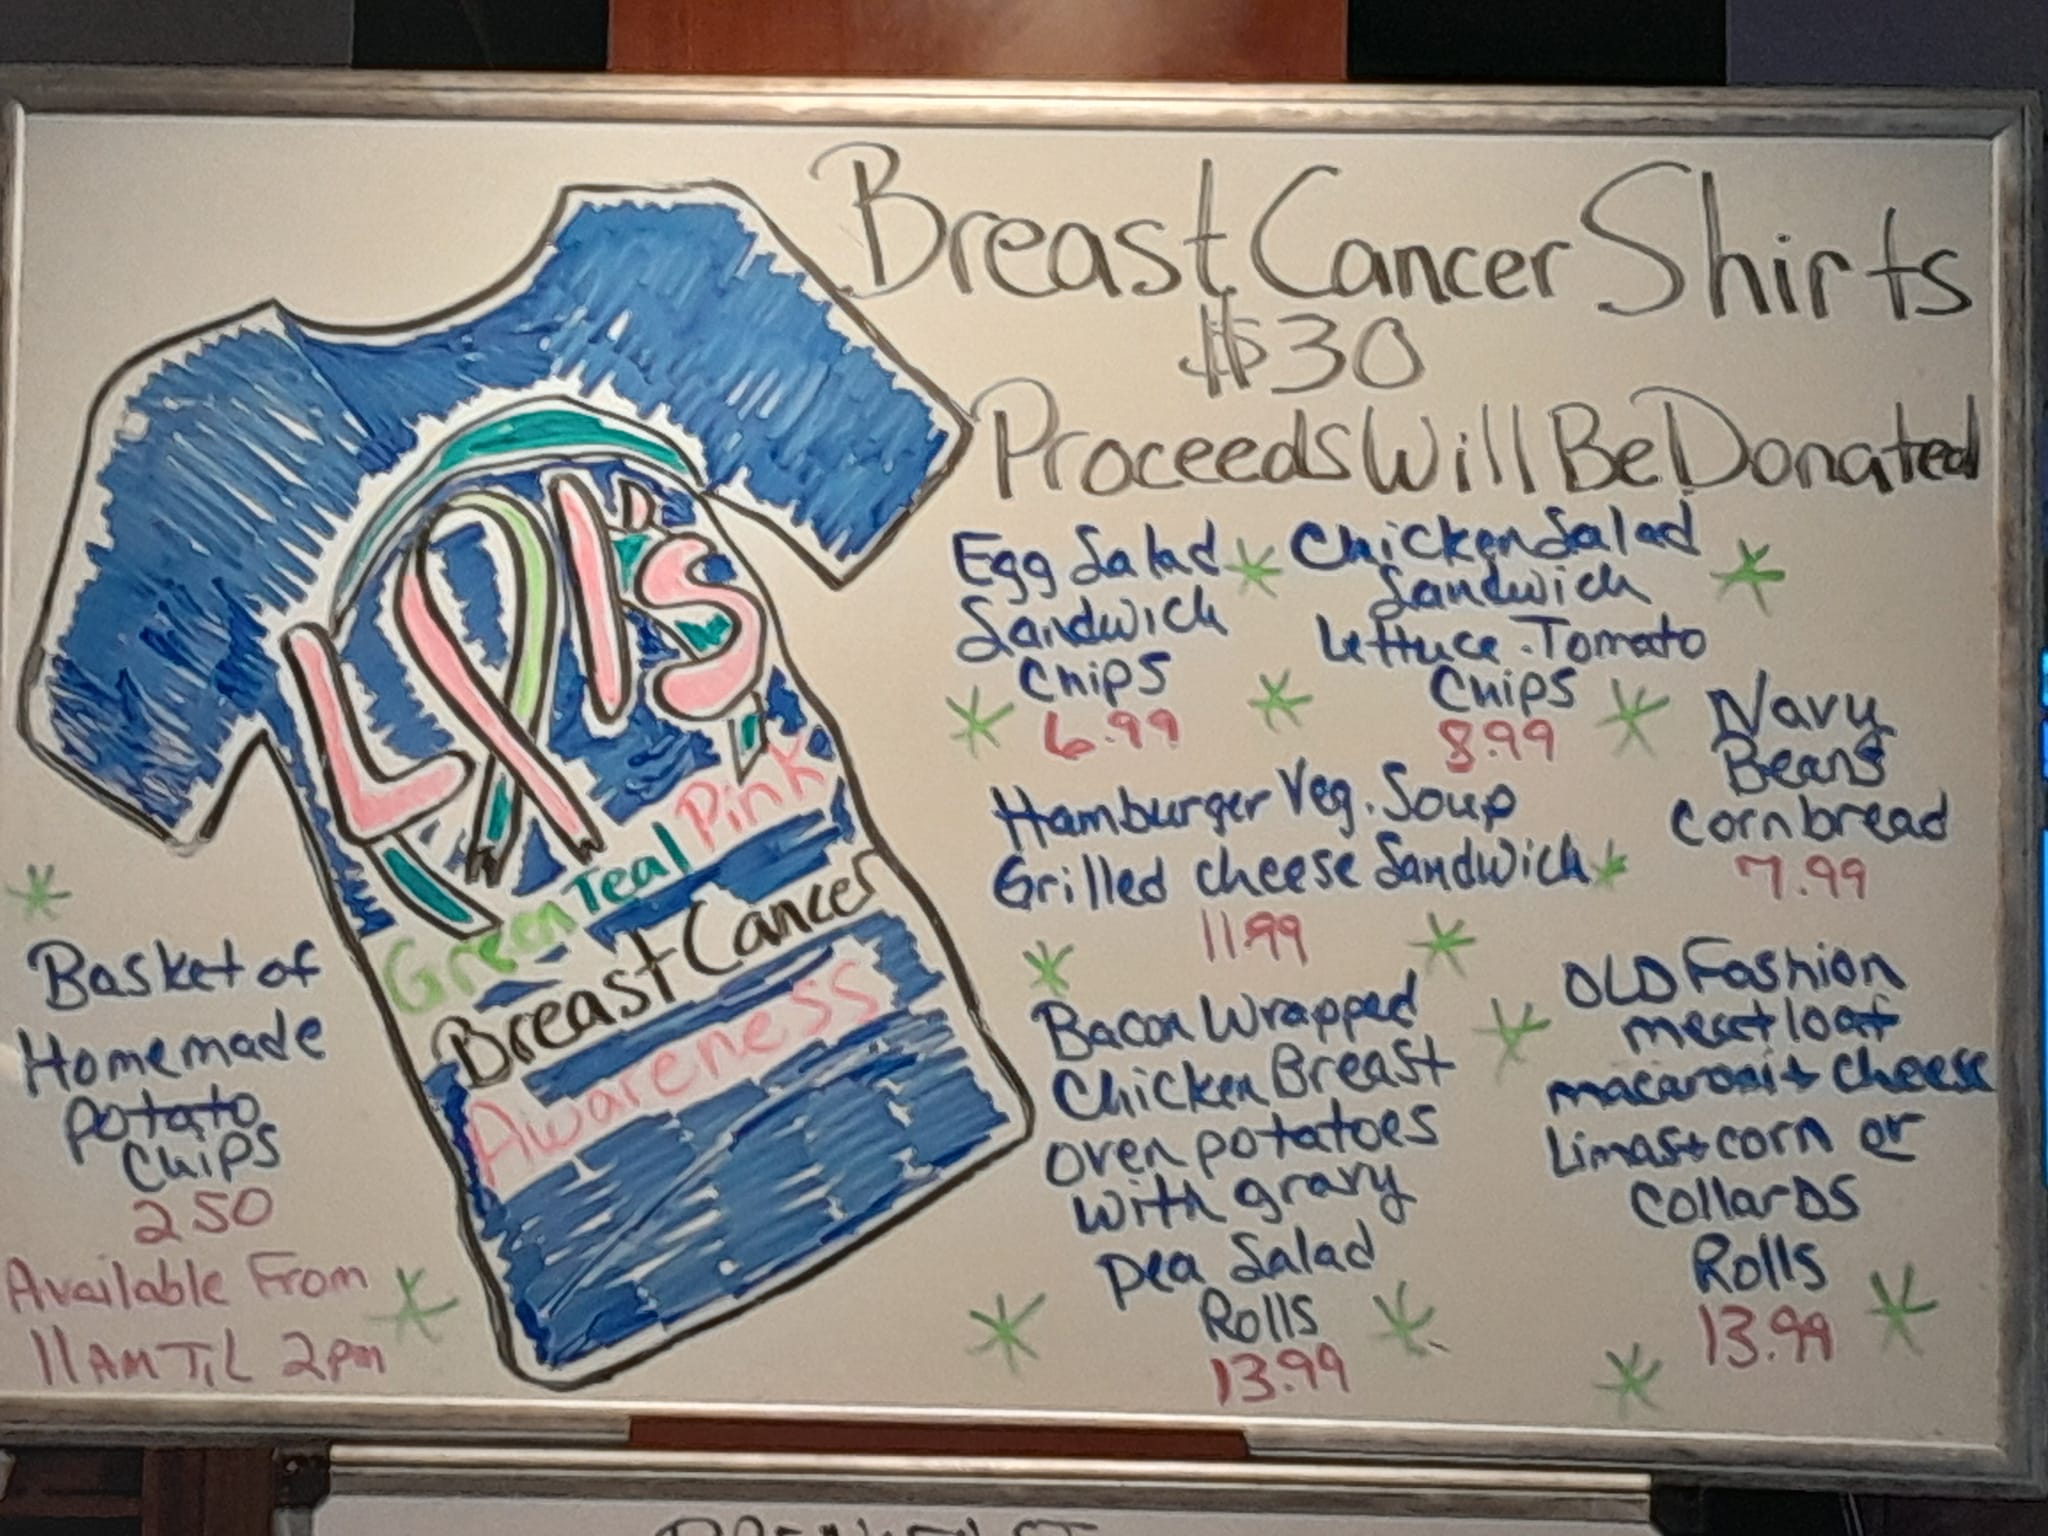 Breast Cancer Shirts
$30
Proceeds Will Be Donated
Li's
Green Teal Pink
Breast Cancer
Awareness
Egg Salad
Sandwich
Chips
6.99
Chicken Salad
Sandwich
Lettuce . Tomato
Chips
8.99
Navy
Beans
Cornbread
7.99
Hamburger Veg. Soup
Grilled cheese Sandwich
11.99
Basket of
Homemade
Potato
Chips
2.50
Available From
11AM TiL 2pm
Bacon Wrapped
Chicken Breast
oven potatoes
with gravy
pea Salad
Rolls
13.99
OLD Fashion
meatloaf
macaroni + cheese
Limas + corn or
CollarDS
Rolls
13.99